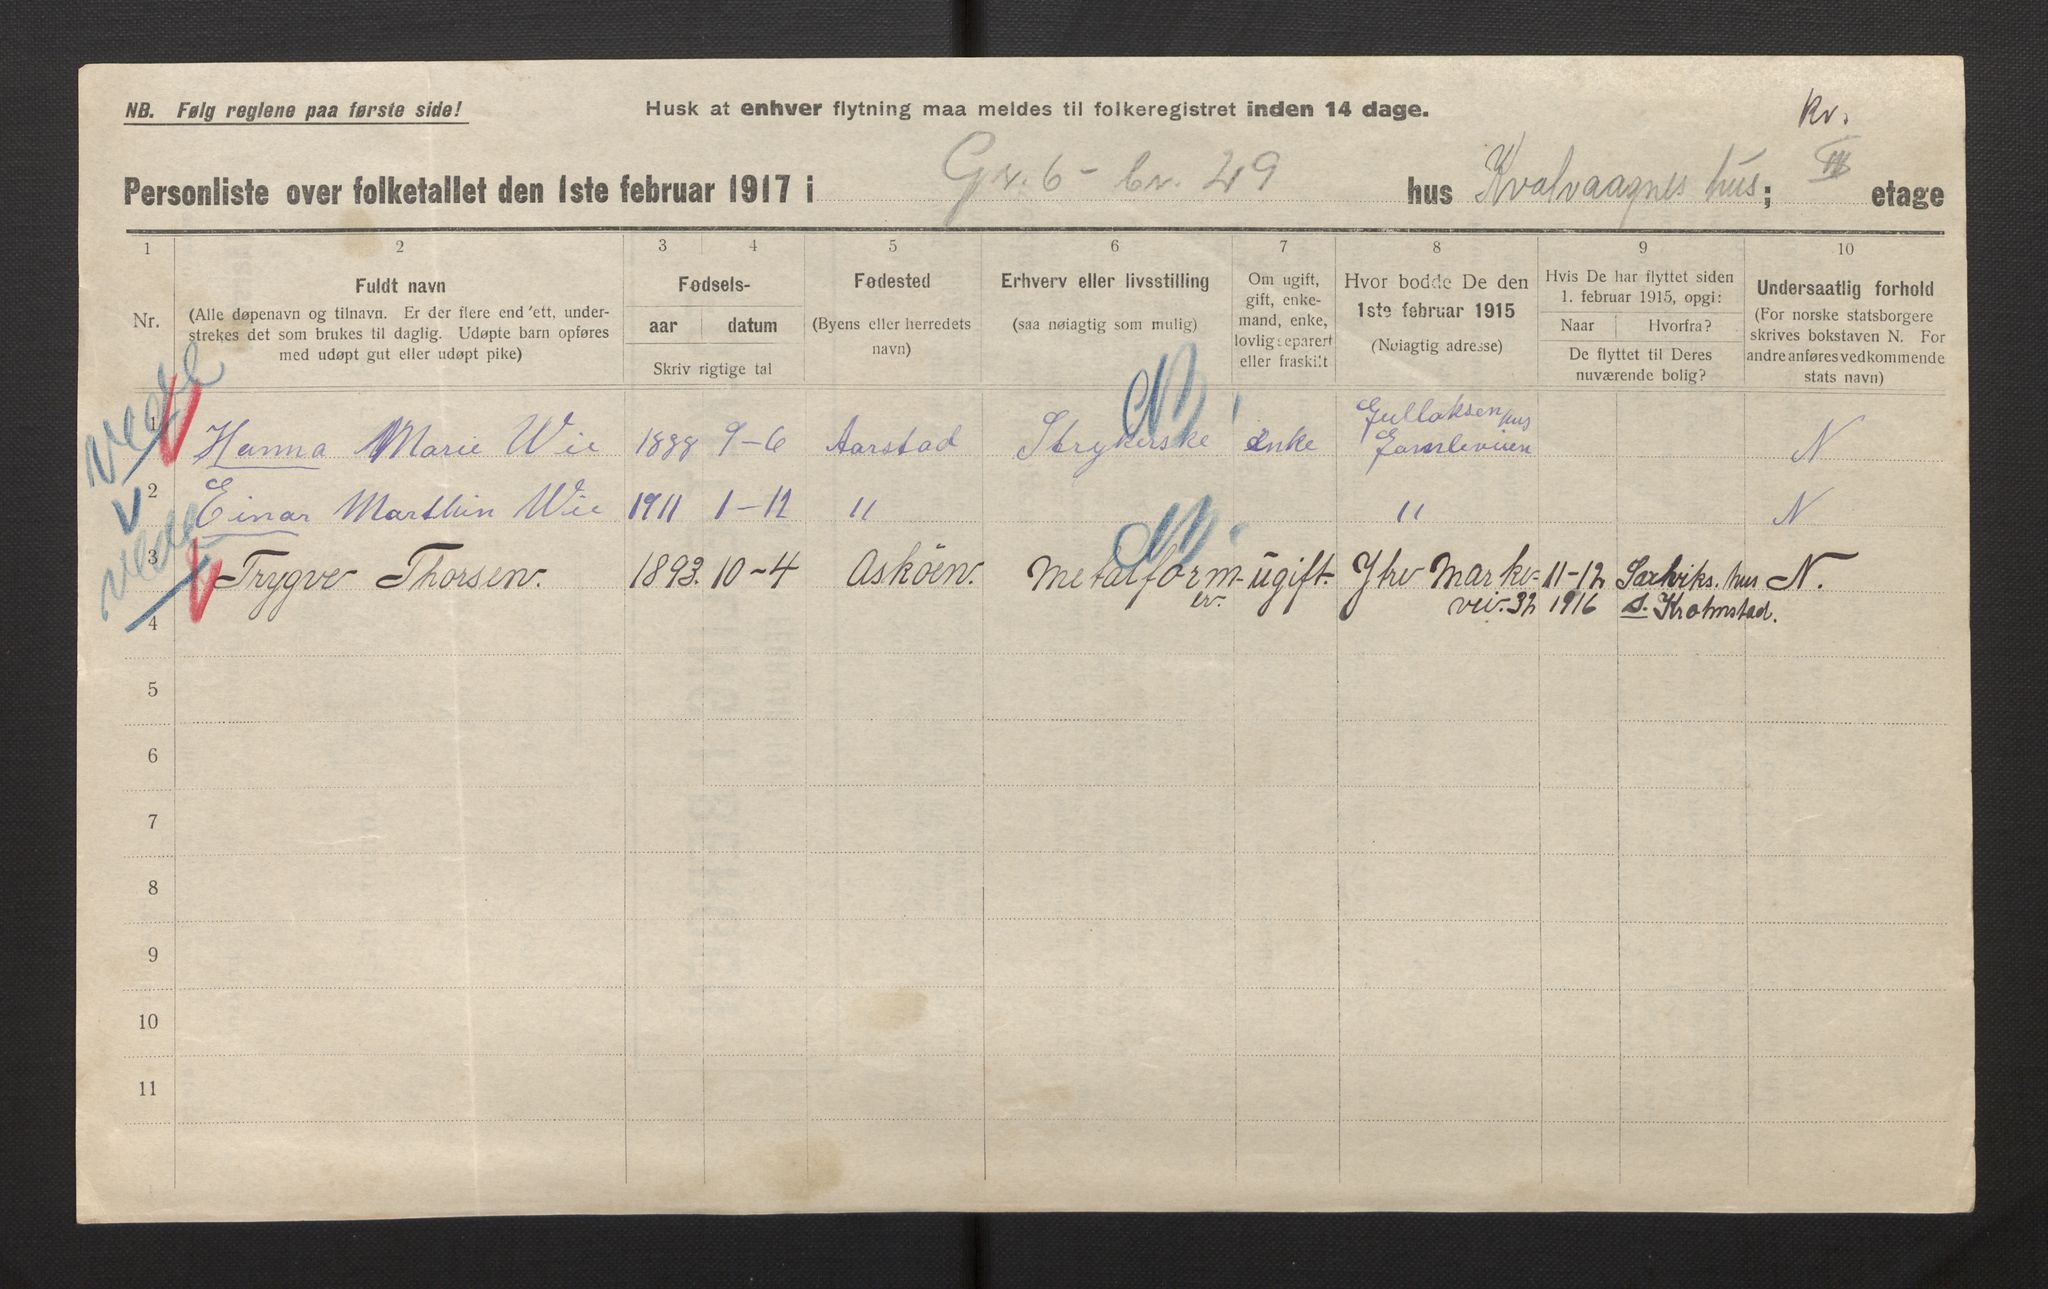 NB. Følg reglene paa første side!
Husk at enhver flytning maa meldes til folkeregistret inden 14 dage.
Kv.
Personliste over folketallet den 1ste februar 1917 i Gr. 6 - br. 29 hus Kvalvaagnes hus; etage
1 2 3 4 5 6 7 8 9 10
Nr.
Fuldt navn
(Alle døpenavn og tilnavn. Er der flere end 'ett, under-
strekes det som brukes til daglig. Udøpte barn opføres
med udøpt gut eller udøpt pike)
Fødsels-
aar datum
Skriv rigtige tal
Fødested
(Byens eller herredets
navn)
Erhverv eller livsstilling
(saa nøiagtig som mulig)
Om ugift,
gift, enke-
mand, enke,
lovlig separert
eller fraskilt
Hvor bodde De den
1ste februar 1915
(Nøiagtig adresse)
Hvis De har flyttet siden
1. februar 1915, opgi:
Naar Hvorfra?
De flyttet til Deres
nuværende bolig?
Undersaatlig forhold
(For norske statsborgere
skrives bokstaven N. For
andre anføres vedkommende
stats navn)
1 Hanna Marie Wie 1888 9-6 Aarstad Strykerske Enke Gullaksen hus
Gamleveien N
2 Einar Marthin Wie 1911 1-12 " " N
3 Trygve Thorsen. 1893. 10-4 Asköen. Metalform- ugift. Ytre Marke- 11-12 hus N.
er. vei. 32 1916 Kromstad.
4
5
6
7
8
9
10
11